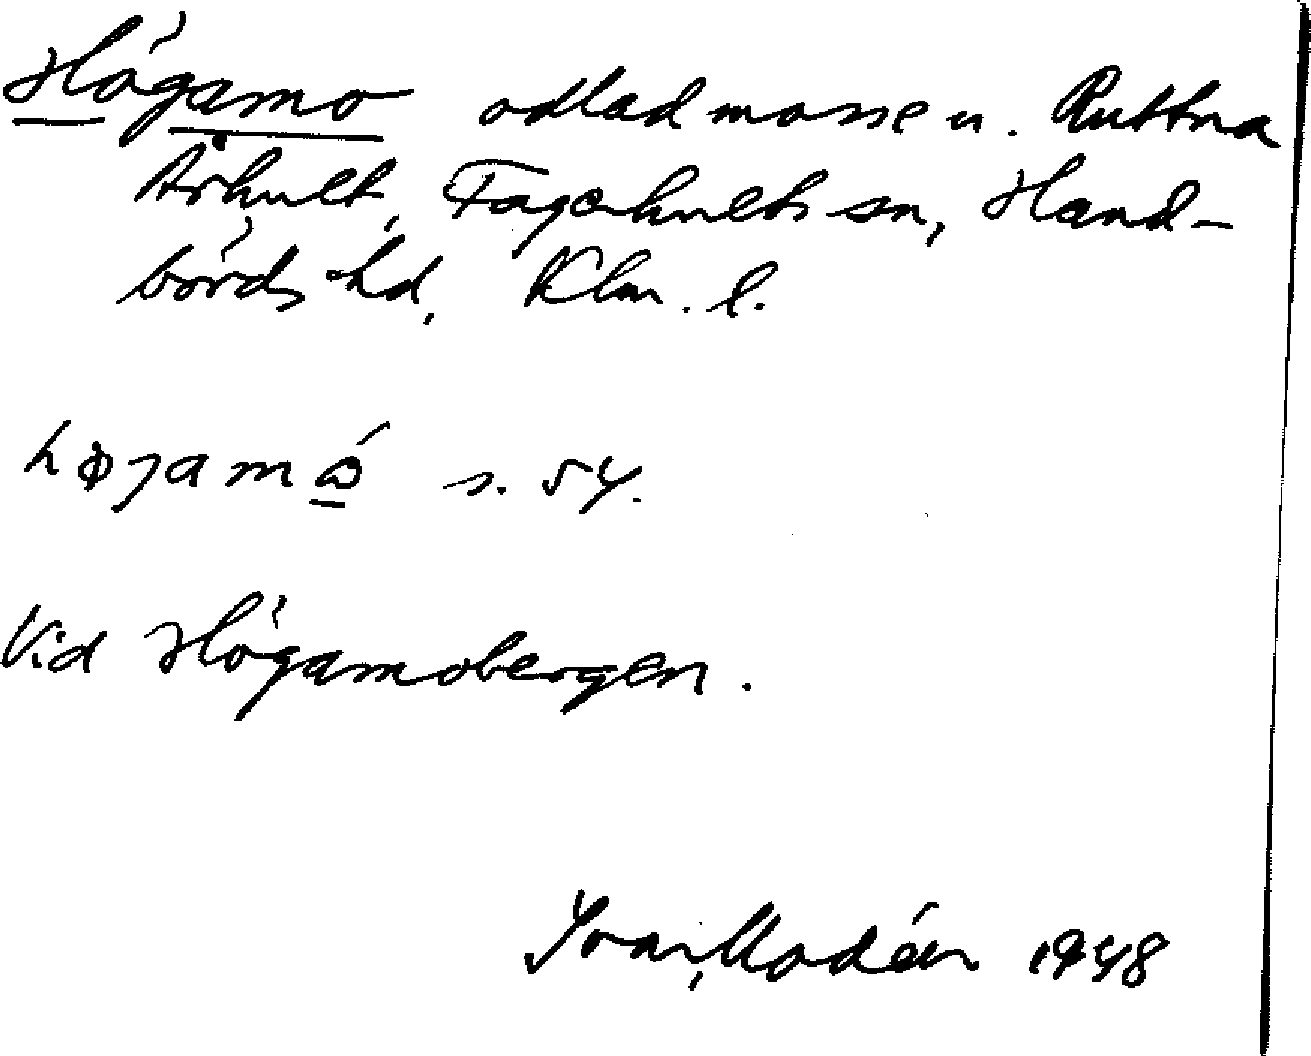 Högamo odlad mosse u. Ruttna
Århult, Fagerhults sn, Hand-
börds hd, Klm. l.
s. 54.
Vid Högamobergen.
Ivar Modéer 1948